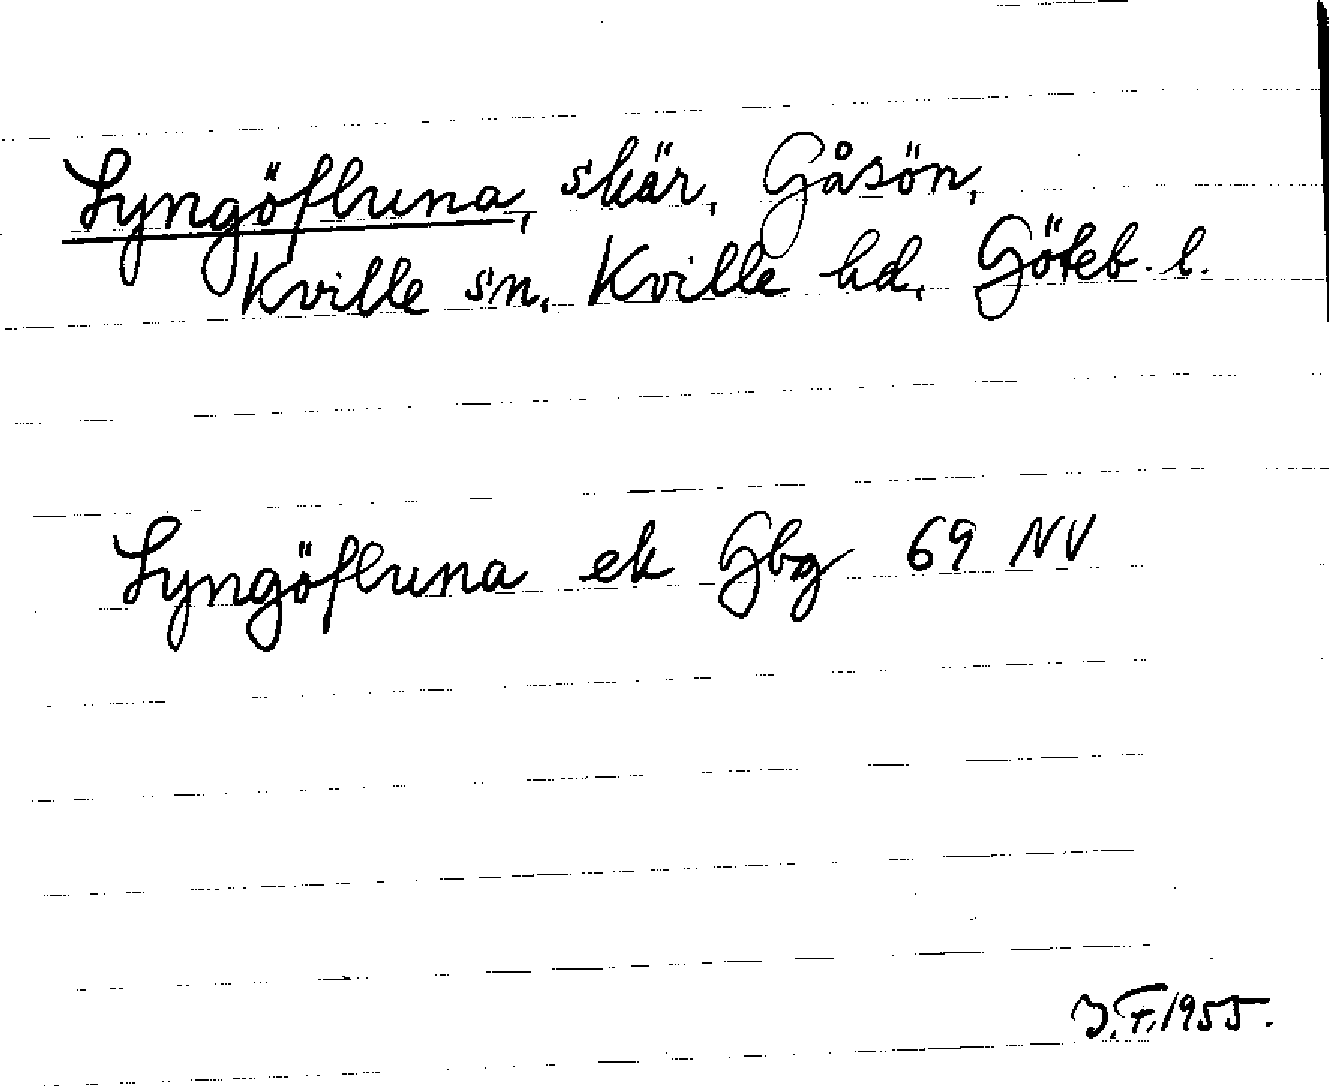 Lyngöfluna, skär, Gåsön,
Kville sn, Kville hd, Göteb. l.
Lyngöfluna ek Gbg 69 NV
J.F. 1955.